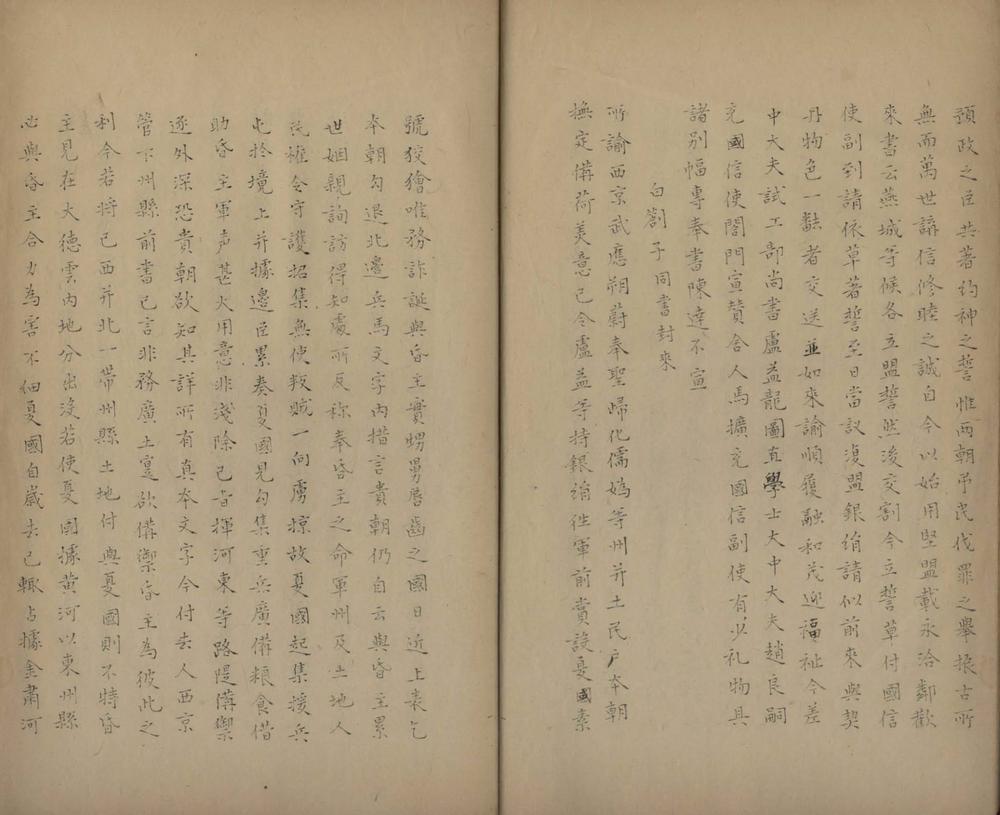 預政之臣共著約神之誓惟兩朝弔民伐罪之舉振古所
無而萬世講信修睦之誠自今以始用堅盟載永洽鄰歡
來書云燕城等候各立盟誓然後交割今立誓草付國信
使副到請依草著誓至日當議復盟銀絹請似前來與契
丹物色一般者交送並如來諭順履融和茂迎福祉今差
中大夫試工部尚書盧益龍圖直學士大中大夫趙良嗣
充國信使閤門宣贊舍人馬擴充國信副使有少礼物具
諸別幅專奉書陳達不宣
白劄子同書封來
所諭西京武應朔蔚奉聖歸化儒媯等州并土民户本朝
撫定備荷美意已令盧益等持銀絹徃軍前賞設夏國素
號狡獪唯務詐誕與昏主實甥舅唇齒之國日近上表乞
本朝勾退北邊兵馬文字内措言貴朝仍自云與昏主累
世姻親詢訪得知處所及称奉昏主之命軍州及土地人
民權令守護招集無使叛賊一向虜掠故夏國起集援兵
屯扵境上并據邊臣累奏夏國見勾集重兵廣備粮食借
助昏主軍声甚大用意非淺除已旨揮河東等路隄備禦
逐外深恐貴朝欲知其詳所有真本文字今付去人西京
管下州縣前書已言非務廣土寔欲備禦昏主為彼此之
利今若將已西并北一帶州縣土地付與夏國則不特昏
主見在大德雲内地分出没若使夏國據黄河以東州縣
必與昏主合力為害不細夏國自嵗去已輒占據金肅河